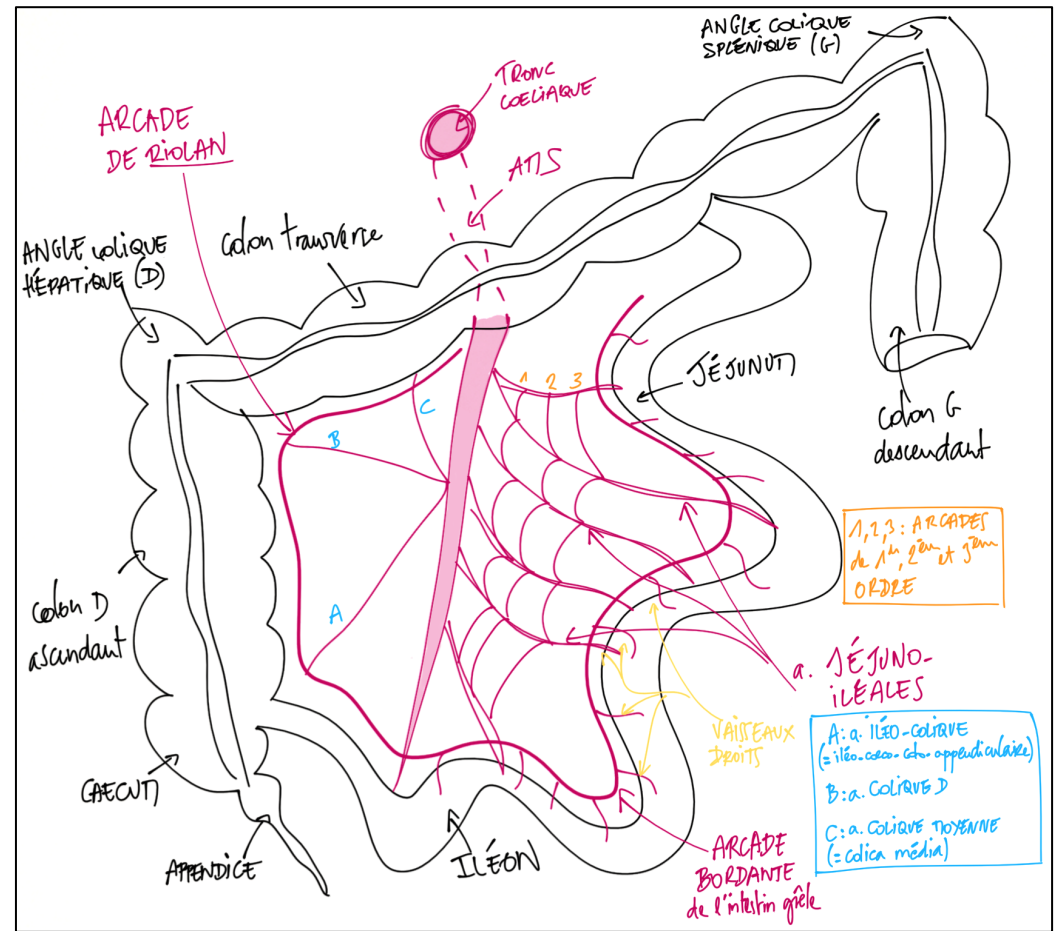 ANGLE COLIQUE
SPLÉNIQUE (G)
TRONC
COELIAQUE
ARCADE
DE RIOLAN
AMS
ANGLE COLIQUE
HÉPATIQUE (D)
colon transverse
1 2 3
JÉJUNUM
C
B
colon G
descendant
1,2,3 : ARCADES
de 1er, 2ème et 3ème
ORDRE
A
colon D
ascendant
a. JÉJUNO-
ILÉALES
VAISSEAUX
DROITS
A: a. ILÉO-COLIQUE
(= iléo-caeco-colo-appendiculaire)
B: a. COLIQUE D
C: a. COLIQUE MOYENNE
(= colica média)
CAECUM
APPENDICE
ILÉON
ARCADE
BORDANTE
de l'intestin grêle